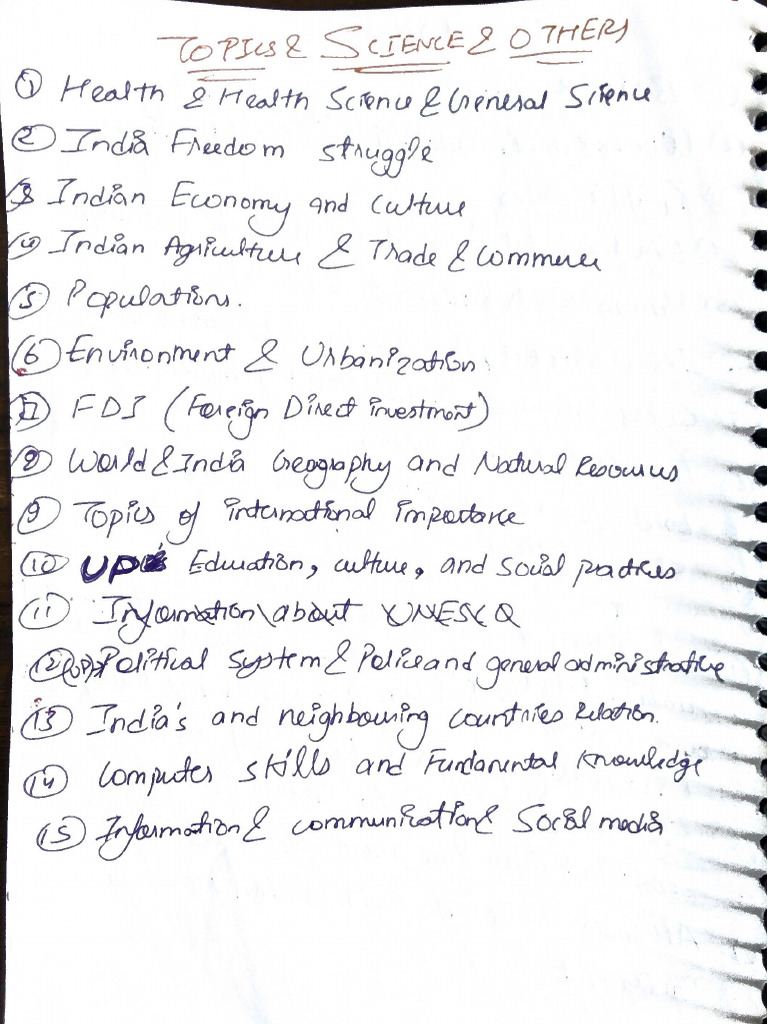 TOPICS & SCIENCE & OTHERS
① Health & Health Science & General Science
② India Freedom struggle
③ Indian Economy and culture
④ Indian Agriculture & Trade & Commerce
⑤ Populations.
⑥ Environment & Urbanization
⑦ FDI (Foreign Direct investment)
⑧ World & India Geography and Natural Resources
⑨ Topics of international importance
⑩ UP Education, culture, and social practices
⑪ Information about UNESCO
⑫ (UP) Political system & Police and general administrative
⑬ India's and neighbouring countries Relation.
⑭ Computer skills and Fundamental knowledge
⑮ Information & communication & Social media